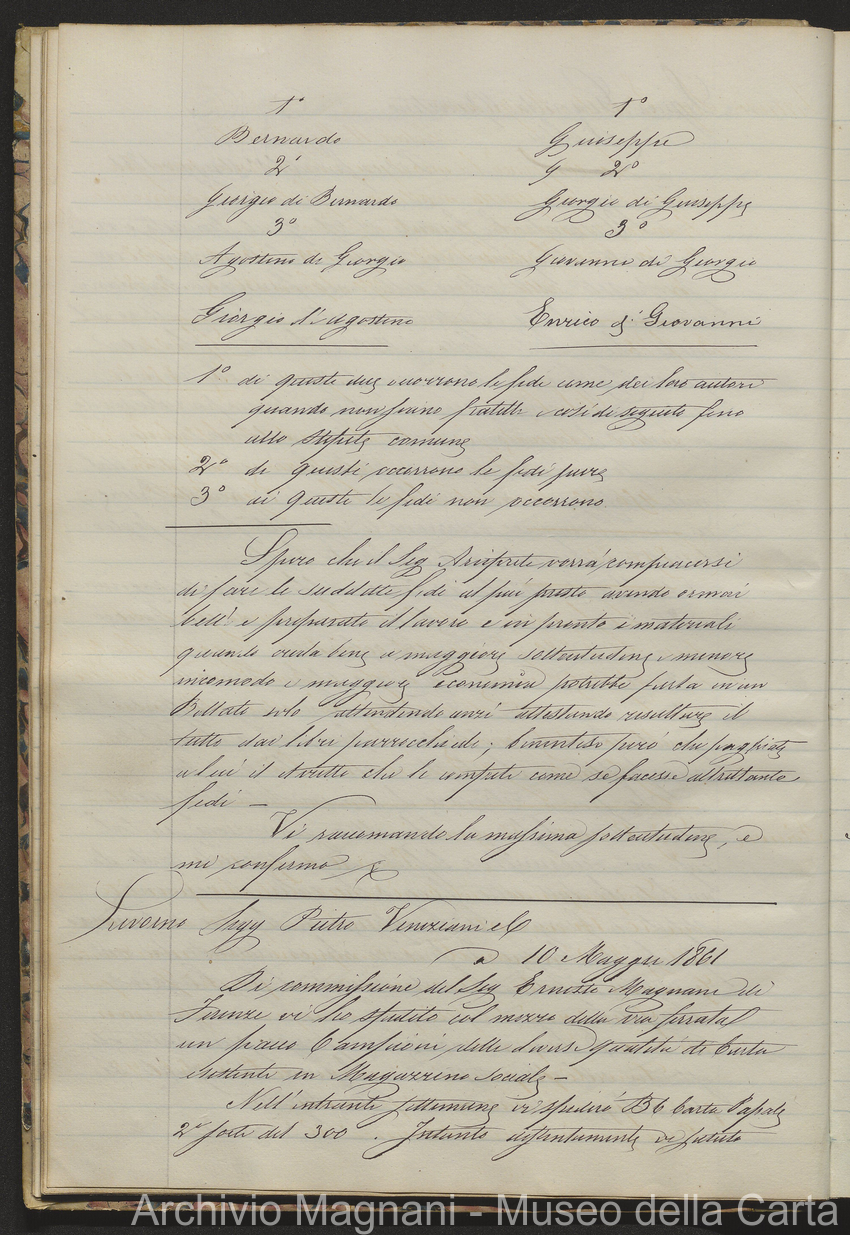 1° 1°
Bernardo Giuseppe
2° G 2°
Giorgio di Bernardo Giorgio di Giuseppe
3° 3°
Agostino di Giorgio Giovanni di Giorgio
Giorgio d'Agostino Enrico di Giovanni
1° di questi due occorrono le fedi come dei loro autori
quando non siano fratelli e così di seguito fino
allo stipite comune
2° di questi occorrono le fedi pure
3° di queste le fedi non occorrono
Spero che il Sig Arciprete vorrà compiacersi
di fare le suddette fedi al più presto avendo ormai
bell' e preparato il lavoro e in pronto i materiali
quando creda bene a maggiore sollecitudine e minore
incomodo e maggiore economia potrebbe farla in un
Bollato solo attestando resultare il
tutto dai libri parrocchiali; beninteso però che pagherete
a lui il diritto che le compete come se facesse altrettante
fedi —
Vi raccomando la massima sollecitudine, e
mi confermo
Livorno Sigg Pietro Veneziani e C
a 10 Maggio 1861
Di commissione del Sig Ernesto Magnani di
Firenze vi ho spedito col mezzo della via ferrata
un pacco Campioni delle diverse qualità di Carta
esistente in Magazzino Sociale —
Nell'entrante settimana vi spedirò B 6 Carta Papale
2a forte del 300. Intanto distintamente vi saluto
Archivio Magnani - Museo della Carta